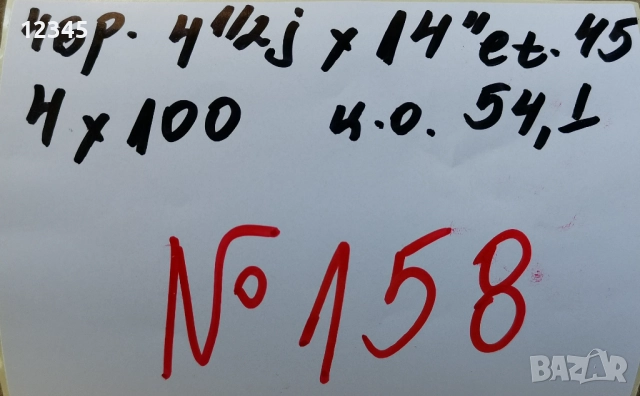 12345
кор. 4 1/2j x 14" et. 45
4 x 100 ц.о. 54,1
№ 158
BAZAR